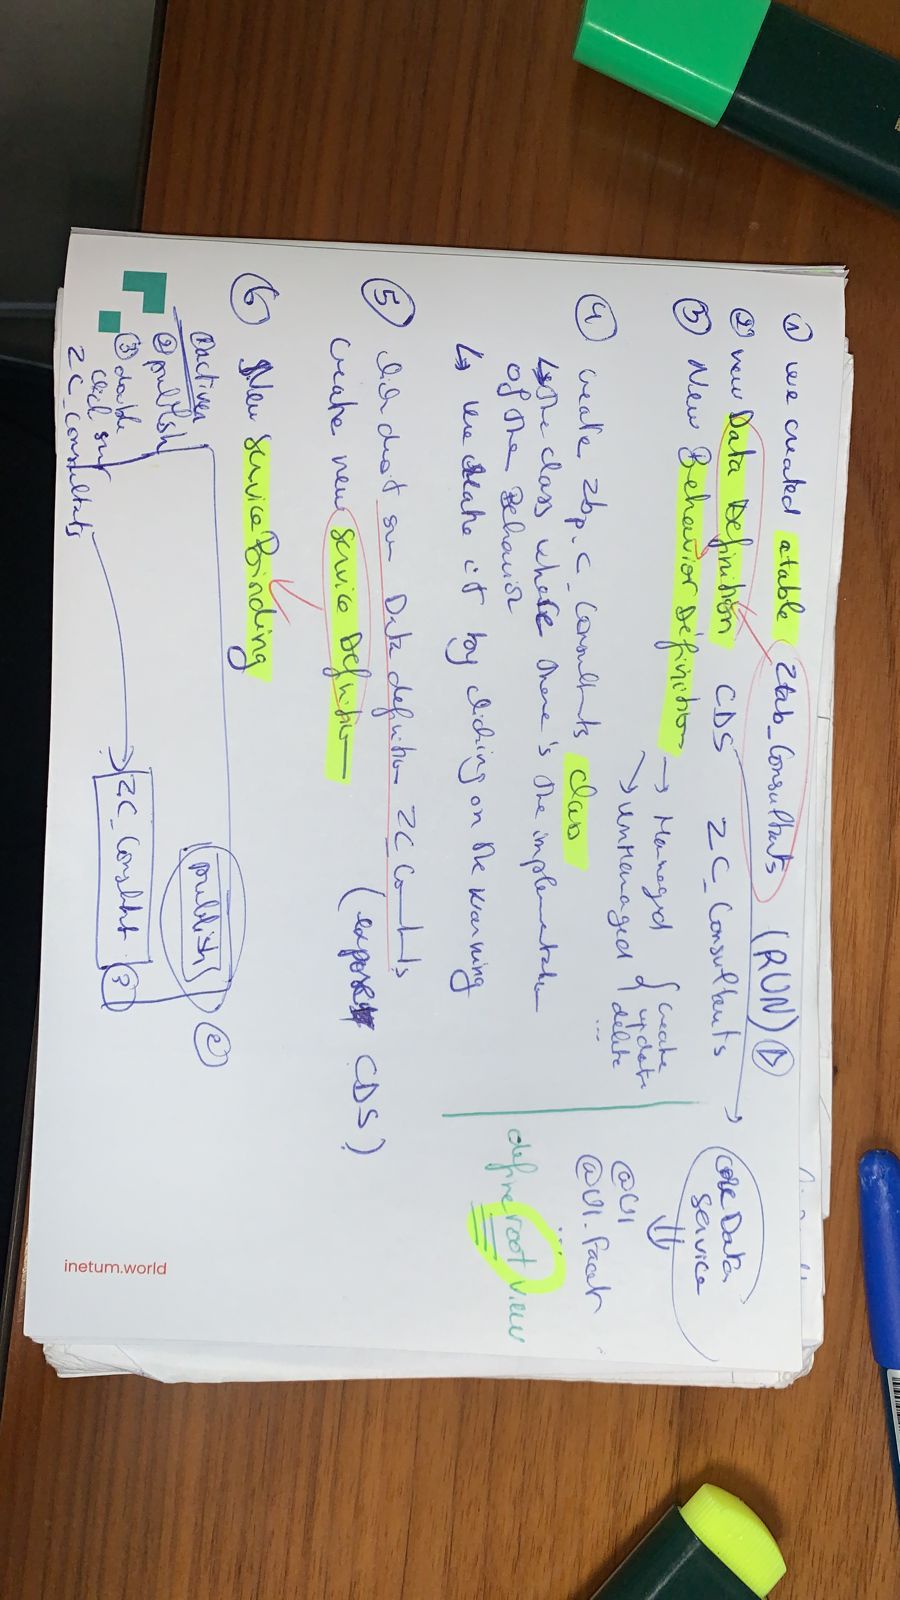 ① we created a table Ztab_Consultants (RUN)
② new Data Definition CDS ZC_Consultants
③ New Behavior Définition
→ Managed
→ UnManaged
create
update
delete
...
core Data
service
@UI
@UI.facet
...
define root view
④ create Zbp_C_Consultants class
↳ the class where there's the implementation
of the Behavior
↳ we create it by clicking on the warning
⑤ click droit sur Data definition ZC_Consultants
(expose CDS)
create new Service Definition
⑥ New Service Binding
① activer
② publish
③ double
click sur
ZC_Consultants
publish ②
ZC_Consltnt ③
inetum.world